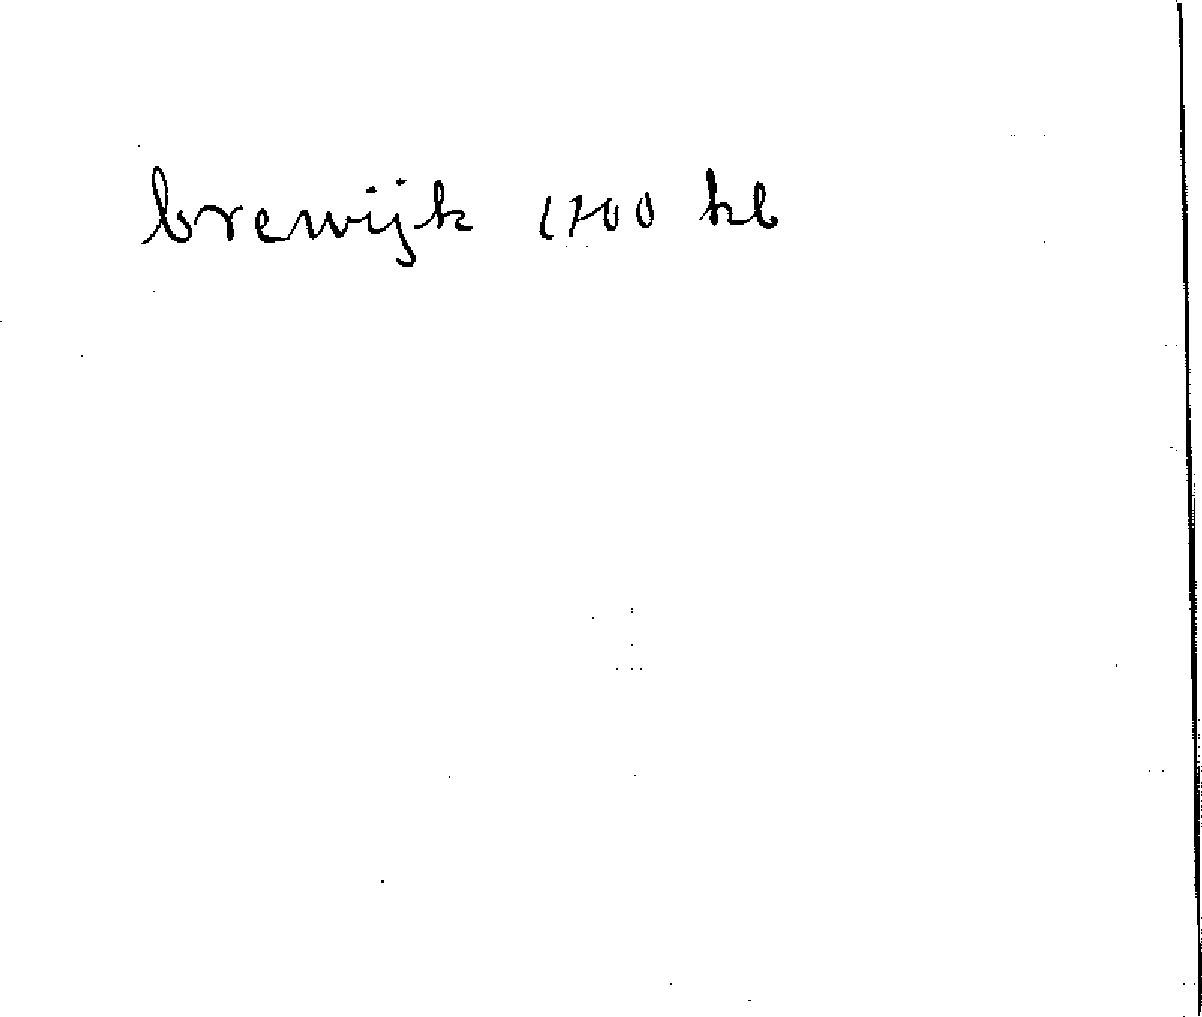 brewijk 1700 hl